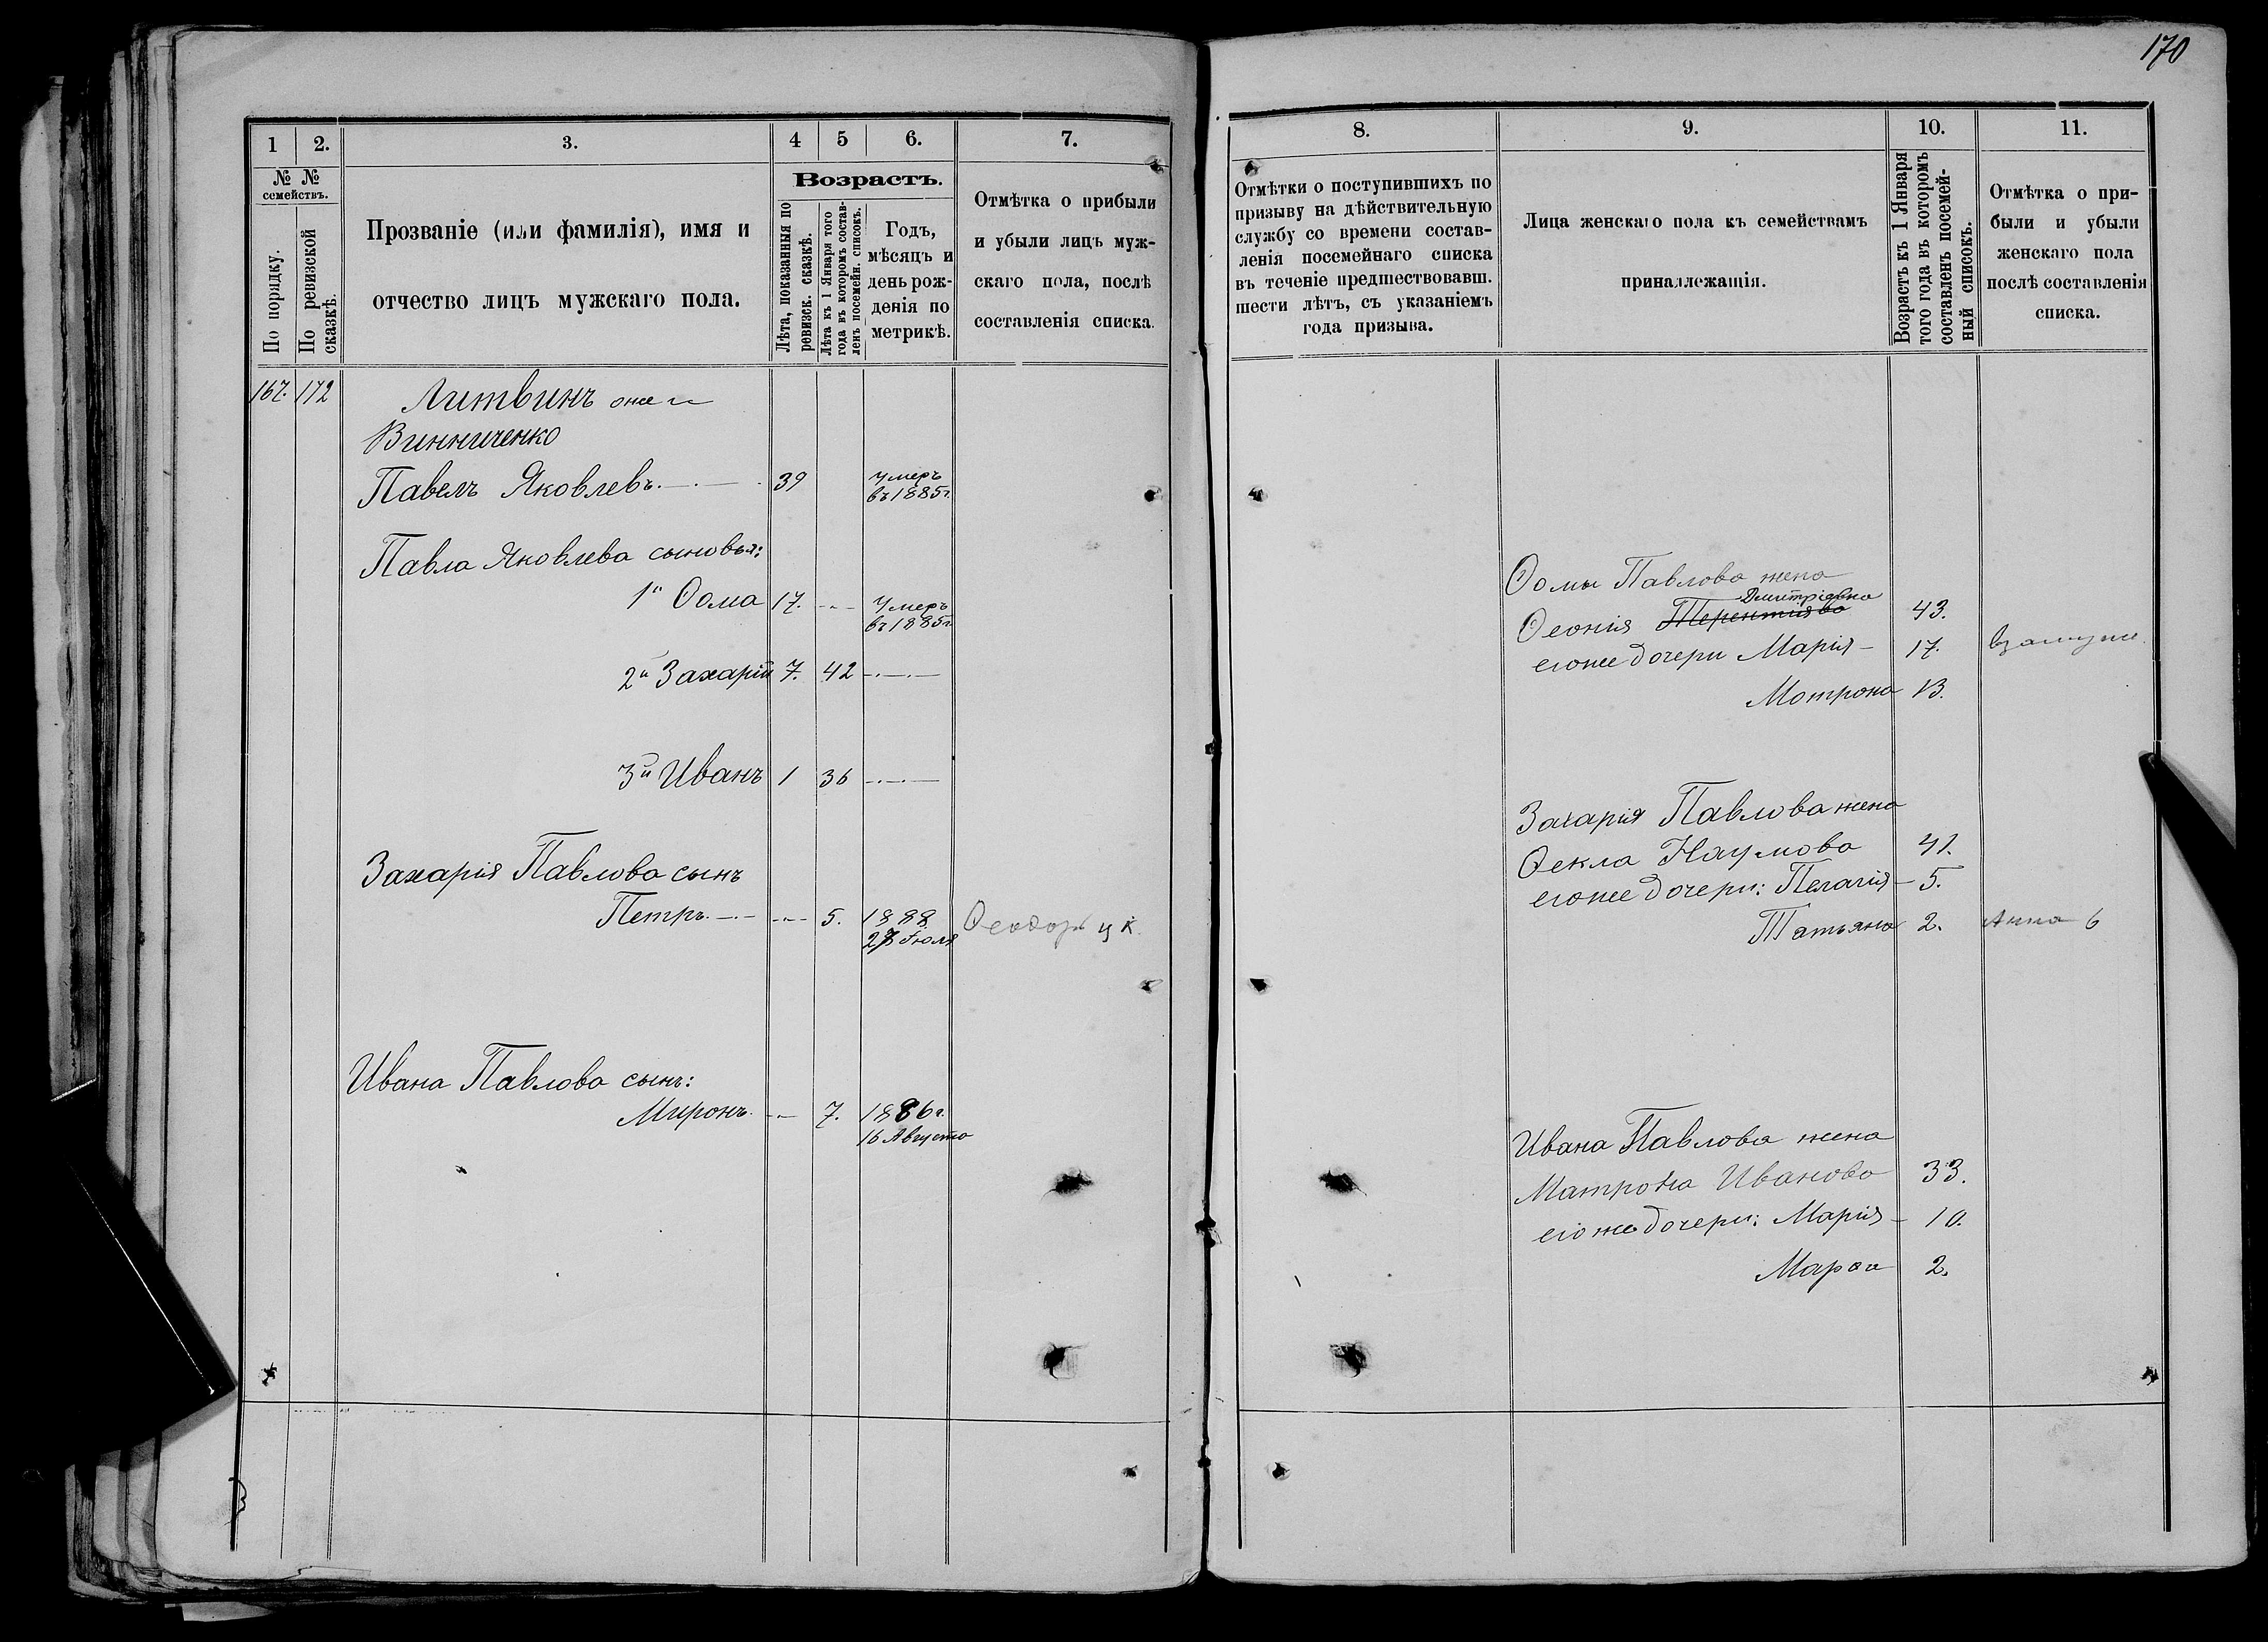 170
1 2. 3. 4 5 6. 7.
№ № семействъ.
По порядку.
По ревизской сказкѣ.
Прозваніе (или фамилія), имя и
отчество лицъ мужскаго пола.
Возрастъ.
Лѣта, показанныя по
ревизск. сказкѣ.
Лѣта къ 1 Января того
года въ которомъ состав-
ленъ посемейн. списокъ.
Годъ,
мѣсяцъ и
день рож-
денія по
метрикѣ.
Отмѣтка о прибыли
и убыли лицъ муж-
скаго пола, послѣ
составленія списка.
167. 172 Литвинъ онъ и
Винниченко
Павелъ Яковлевъ 39 Умеръ
въ 1885г.
Павла Яковлева сыновья:
1й Ѳома 17. Умеръ
въ 1885г.
2й Захарій 7. 42
3й Иванъ 1 36
Захарія Павлова сынъ
Петръ 5. 1888 Ѳеодоръ
27 Іюля
Ивана Павлова сынъ:
Миронъ 7. 1886г.
16 Августа
8. 9. 10. 11.
Отмѣтки о поступившихъ по
призыву на дѣйствительную
службу со времени состав-
ленія посемейнаго списка
въ теченіе предшествовавш.
шести лѣтъ, съ указаніемъ
года призыва.
Лица женскаго пола къ семействамъ
принадлежащія.
Возрастъ къ 1 Января
того года въ которомъ
составленъ посемей-
ный списокъ.
Отмѣтка о при-
были и убыли
женскаго пола
послѣ составленія
списка.
Ѳомы Павлова жена
Дмитріевна
Ѳеонія Терентіева 43.
его же дочери Марія 17. взамуже
Мотрона 13.
Захарія Павлова жена
Ѳекла Наумова 41.
его же дочери: Пелагія 5.
Татьяна 2. Анна 6
Ивана Павлова жена
Матрона Иванова 33.
его же дочери: Марія 10.
Марѳа 2.